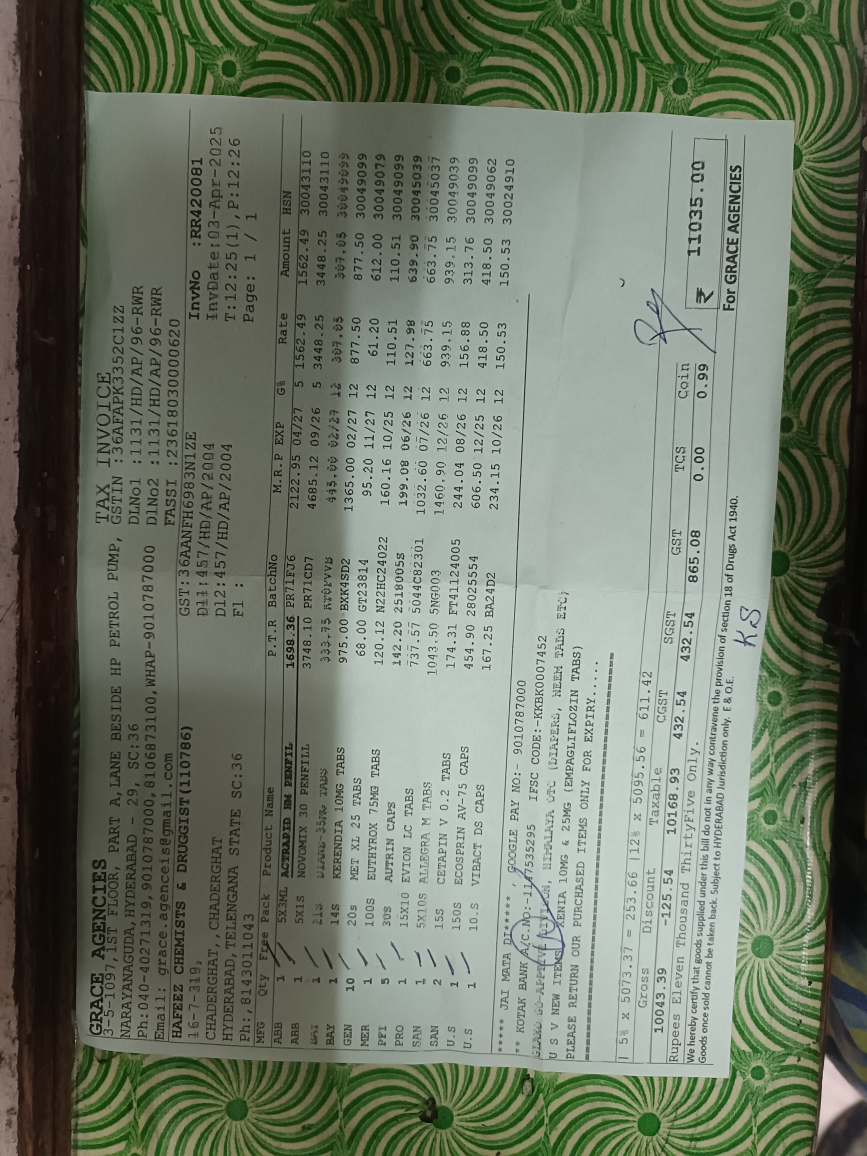 GRACE AGENCIES
3-5-1097,1ST FLOOR, PART A,LANE BESIDE HP PETROL PUMP,
NARAYANAGUDA,HYDERABAD - 29, SC:36
Ph:040-40271319,9010787000,8106873100,WHAP-9010787000
Email: grace.agenceis@gmail.com
TAX INVOICE
GSTIN :36AFAPK3352C1ZZ
DLNo1 :1131/HD/AP/96-RWR
DlNo2 :1131/HD/AP/96-RWR
FASSI :23618030000620
HAFEEZ CHEMISTS & DRUGGIST(110786)
16-7-319,
CHADERGHAT,,CHADERGHAT
HYDERABAD,TELENGANA STATE SC:36
Ph:,8143011043
GST:36AANFH6983N1ZE
Dl1:457/HD/AP/2004
Dl2:457/HD/AP/2004
Fl :
InvNo :RR420081
InvDate:03-Apr-2025
T:12:25(1),P:12:26
Page: 1 / 1
MFG Qty Free Pack Product Name P.T.R BatchNo M.R.P EXP G% Rate Amount HSN
ABB 1 5X3ML ACTRAPID HM PENFIL 1698.36 PR71FJ6 2122.95 04/27 5 1562.49 1562.49 30043110
ABB 1 5X1S NOVOMIX 30 PENFILL 3748.10 PR71CD7 4685.12 09/26 5 3448.25 3448.25 30043110
BAY 1 21S DIANE-35MG TABS 333.75 445.00 02/27 12 307.05 307.05 30049099
BAY 1 14S KERENDIA 10MG TABS 975.00 BXK4SD2 1365.00 02/27 12 877.50 877.50 30049099
GEN 10 20s MET XL 25 TABS 68.00 GT23814 95.20 11/27 12 61.20 612.00 30049079
MER 1 100S EUTHYROX 75MG TABS 120.12 N22HC24022 160.16 10/25 12 110.51 110.51 30049099
PFI 5 30S AUTRIN CAPS 142.20 2518005S 199.08 06/26 12 127.98 639.90 30045039
PRO 1 15X10 EVION LC TABS 737.57 5044C82301 1032.60 07/26 12 663.75 663.75 30045037
SAN 1 5X10S ALLEGRA M TABS 1043.50 5NG003 1460.90 12/26 12 939.15 939.15 30049039
SAN 2 15S CETAPIN V 0.2 TABS 174.31 FT41124005 244.04 08/26 12 156.88 313.76 30049099
U.S 1 150S ECOSPRIN AV-75 CAPS 454.90 28025554 606.50 12/25 12 418.50 418.50 30049062
U.S 1 10.S VIBACT DS CAPS 167.25 BA24D2 234.15 10/26 12 150.53 150.53 30024910
***** JAI MATA DI***** , GOOGLE PAY NO:- 9010787000
** KOTAK BANK A/C.NO:-1147535295 IFSC CODE:-KKBK0007452
HIMALAYA OTC (DIAPERS, NEEM TABS ETC)
U S V NEW ITEMS XENIA 10MG & 25MG (EMPAGLIFLOZIN TABS)
PLEASE RETURN OUR PURCHASED ITEMS ONLY FOR EXPIRY......
| 5% x 5073.37 = 253.66 |12% x 5095.56 = 611.42
Gross Discount Taxable CGST SGST GST TCS Coin
10043.39 -125.54 10168.93 432.54 432.54 865.08 0.00 0.99
₹ 11035.00
Rupees Eleven Thousand ThirtyFive Only.
We hereby certify that goods supplied under this bill do not in any way contravene the provision of section 18 of Drugs Act 1940.
Goods once sold cannot be taken back. Subject to HYDERABAD Jurisdiction only. E & O.E.
For GRACE AGENCIES
KS